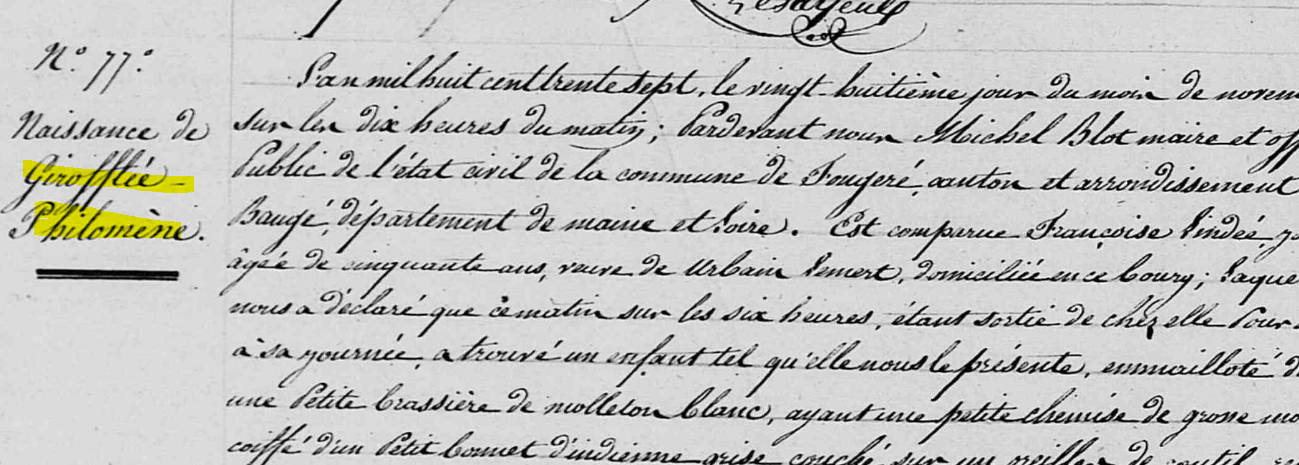 Lesayeulx
N.° 77.°
Naissance de
Girofflée -
Philomène.
L'an mil huit cent trente sept, le vingt huitième jour du mois de novem
sur les dix heures du matin; Pardevant nous Michel Blot maire et off
Public de l'état civil de la commune de Fougeré, canton et arrondissement
Baugé, département de maine et Loire. Est comparue Françoise
âgée de cinquante ans, veuve de Urbain Lemert, domiciliée en ce bourg; Laque
nous a déclaré que ce matin sur les six heures, étant sortie de chez elle Pour
à sa journée, a trouvé un enfant tel qu'elle nous le présente, emmailloté d
une Petite brassière de molleton blanc, ayant une petite chemise de grosse
coiffé d'un Petit bonnet d'indienne grise couché sur un oreiller de coutil